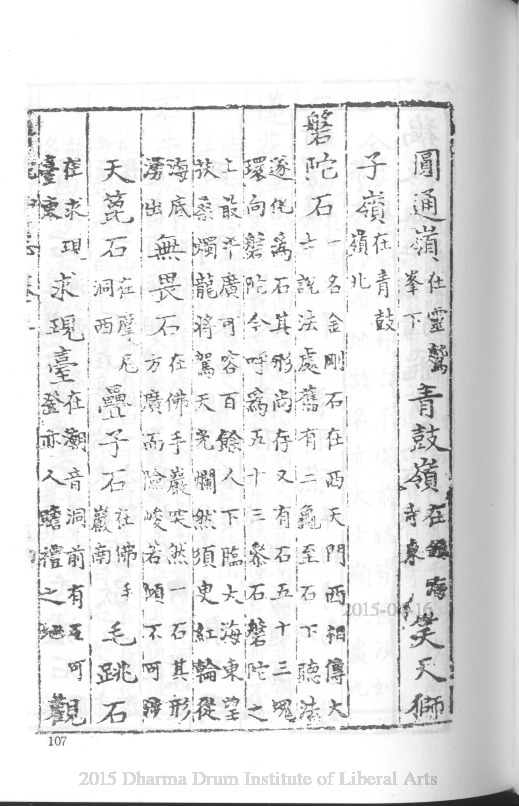 圓通嶺在靈鷲峯下青鼓嶺在鎮海寺東笑天獅
子嶺在青鼓嶺北
磐陀石一名金剛石在西天門西相傳大士說法處舊有二龜至石下聽法
遂化為石其形尚存又有石五十三塊環向磐陀今呼為五十三參石磐陀之
上最平廣可容百餘人下臨大海東望扶桑燭龍將駕天光爛然須臾紅輪從
海底湧出無畏石在佛手巖突然一石其形方廣而險峻若傾不可躋
天蓖石在摩尼洞西疊子石在佛手巖南毛跳石
在求現臺東求現臺在潮音洞前有石可登亦人瞻禮之觀
107
2015-06-16
2015 Dharma Drum Institute of Liberal Arts